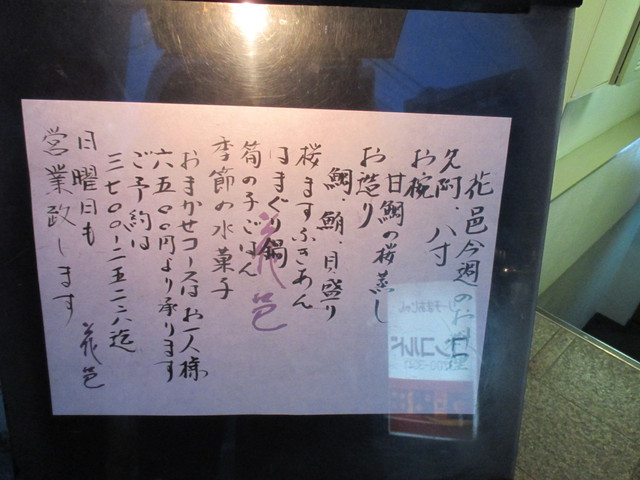 花邑今週のお料理
先附・八寸
お椀
甘鯛の桜蒸し
お造り
鯛、鮪、貝盛り
桜ますふきあん
はまぐり鍋
筍の子ごはん
季節の水菓子
おまかせコースはお一人様
六五〇〇円より承ります
ご予約は
三七〇〇-二五二八迄
日曜日も
営業致します
花邑
花邑